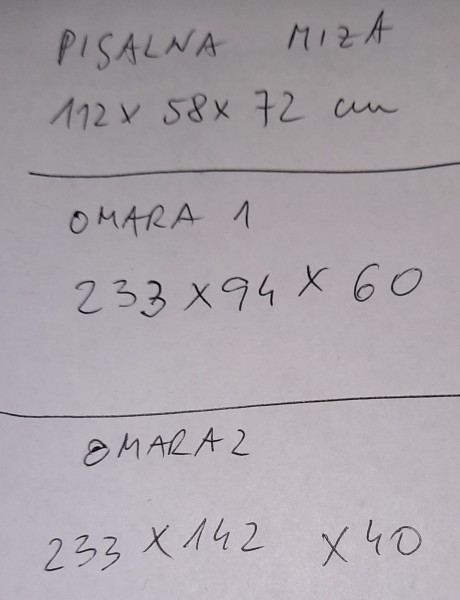 PISALNA MIZA
112 x 58 x 72 cm
OMARA 1
233 x 94 x 60
OMARA 2
233 x 142 x 40